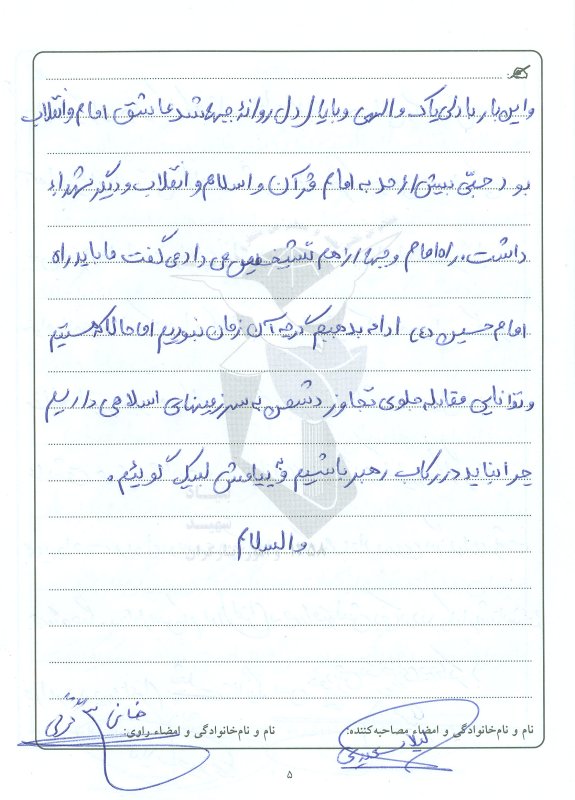 و این بار با دلی پاک و الهی و با یاد دل روانهٔ جبهه شد عاشق امام و انقلاب
بود حبّی بیش از حد به امام قرآن و اسلام و انقلاب و دیگر شهداء
داشت، راه امام و جبهه را هم تشیخص می داد می گفت ما باید راه
امام حسین (ع) ادامه بدهیم گرچه آن زمان نبودیم اما حالا که هستیم
و توانایی مقابله جلوی تجاوز دشمن به سرزمینهای اسلامی داریم
چرا نباید در رکاب رهبر باشیم و به پیامش لبیک گوئیم.
والسلام
بنیاد
شهید
نام و نام‌خانوادگی و امضاء مصاحبه‌کننده:
نام و نام‌خانوادگی و امضاء راوی:
خانم
۵